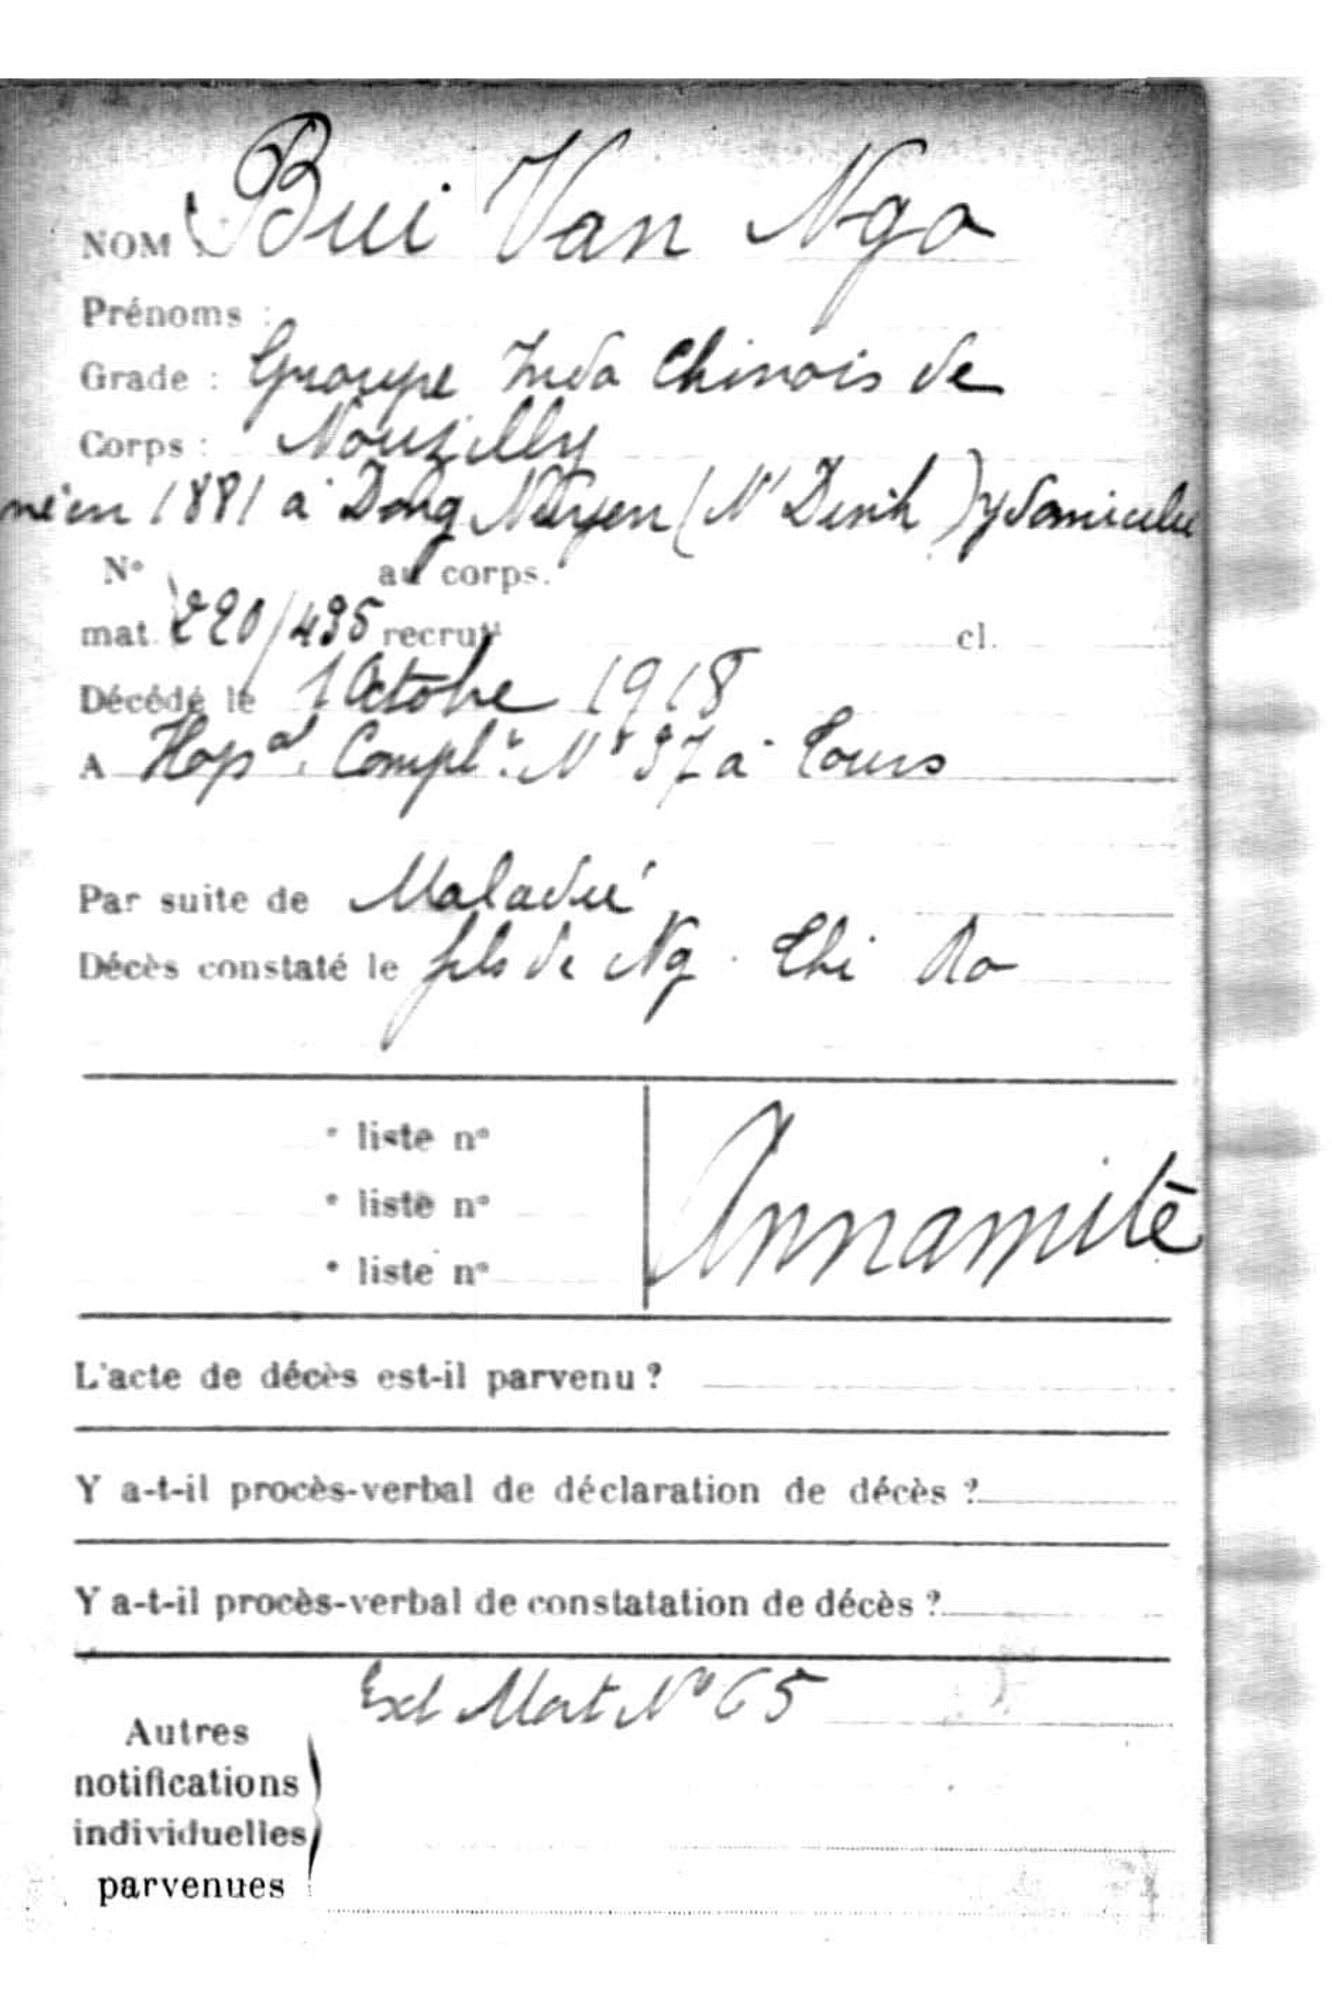 NOM Bui Van Ngo
Prénoms :
Grade : Groupe Indo Chinois de
Corps : Nouzilly
né en 1881 à Dong Nuyen (N' Dinh) y domicilié
N° au corps.
mat. 220/495 recrut cl.
Décédé le 1 Octobre 1918
A Hopal. Complre N° 37 à Tours
Par suite de Maladie
Décès constaté le fils de Ng. Thi Ro
° liste n°
° liste n°
° liste n°
Annamite
L'acte de décès est-il parvenu ?
Y a-t-il procès-verbal de déclaration de décès ?
Y a-t-il procès-verbal de constatation de décès ?
Ext Mort N° 65
Autres
notifications
individuelles
parvenues